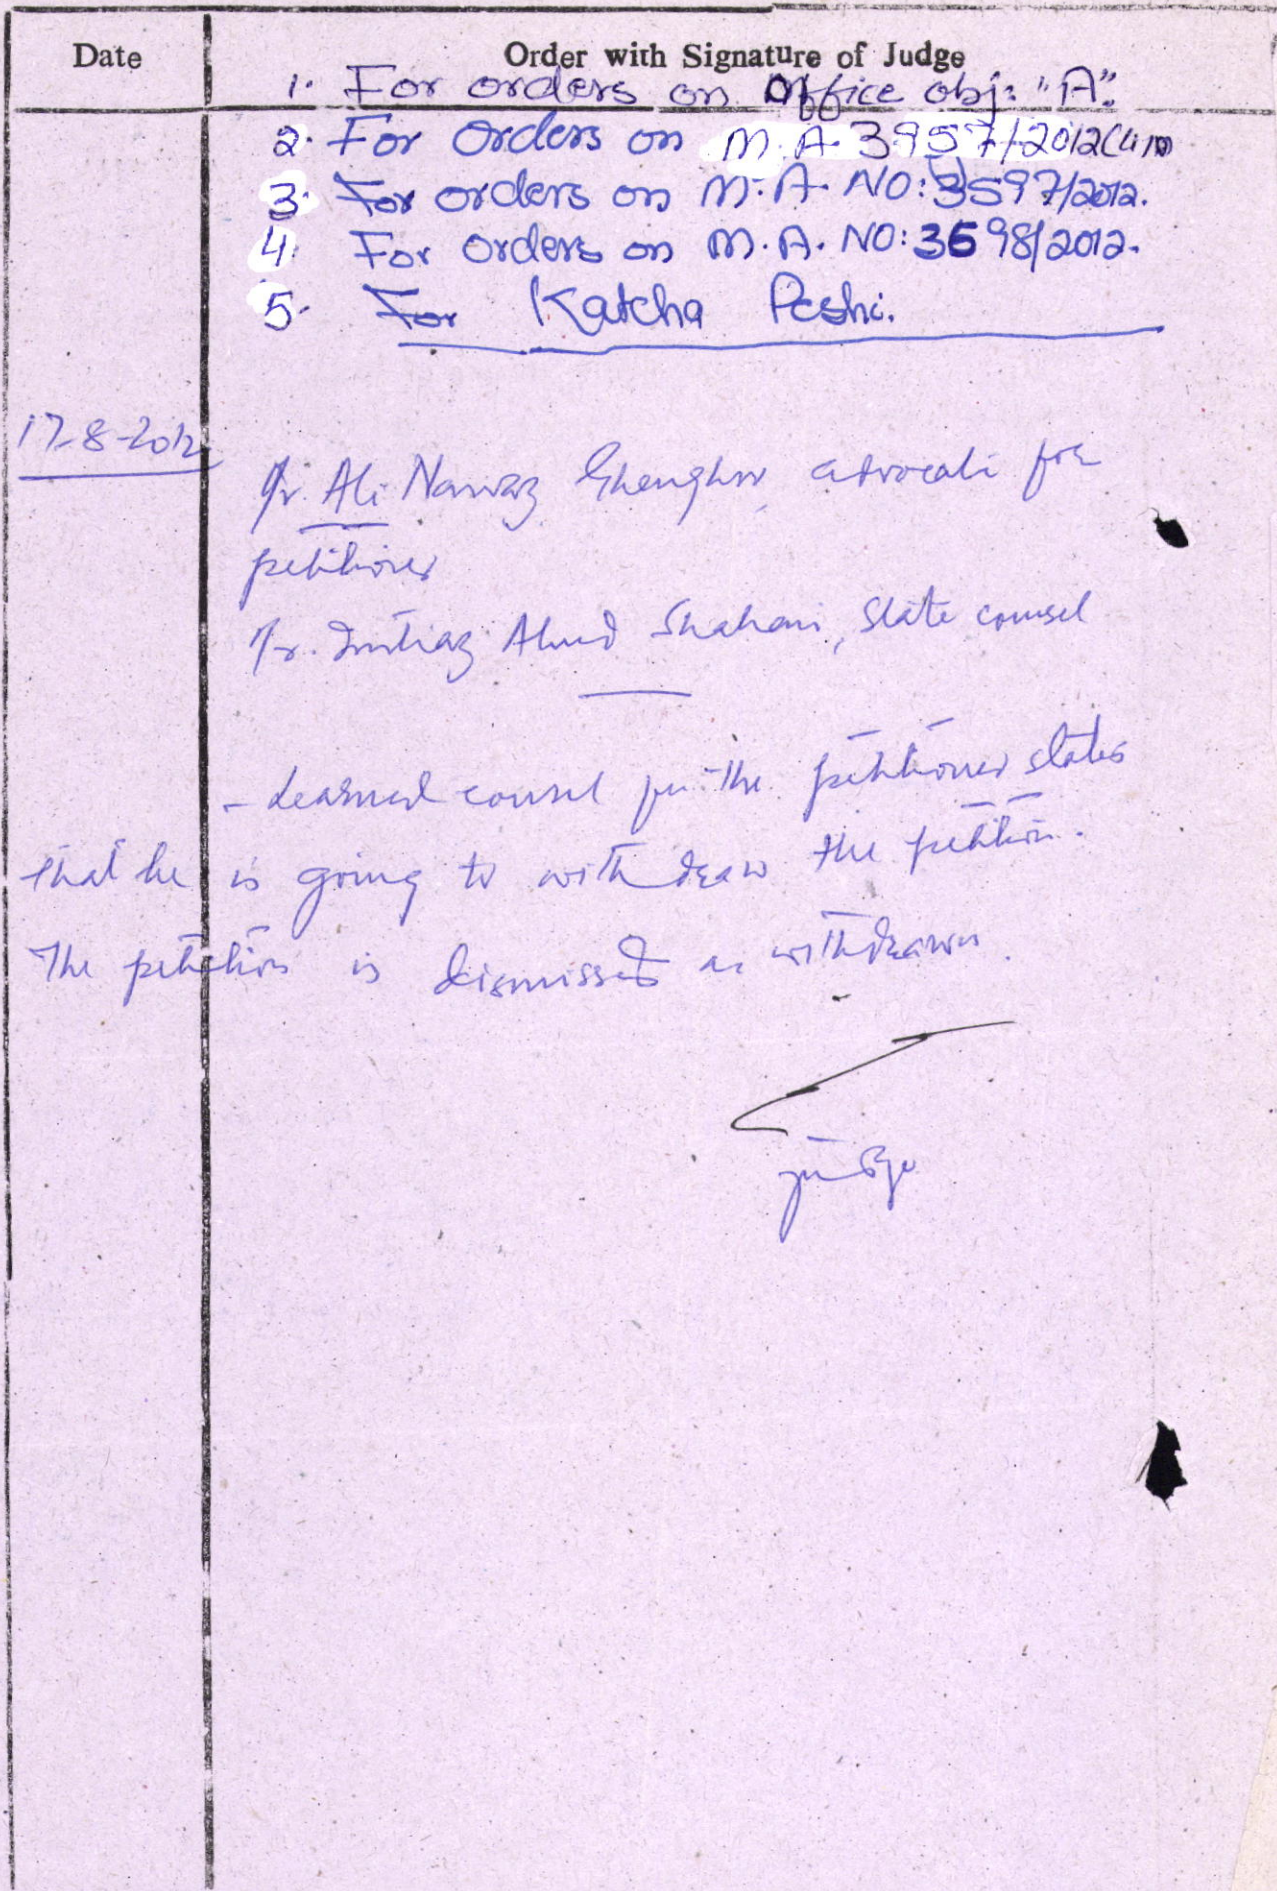 Date
Order with Signature of Judge
1. For orders on office obj: "A".
2. For orders on M.A. 3957/2012 (U/A)
3. For orders on M.A. NO: 3597/2012.
4. For orders on M.A. NO: 3698/2012.
5. For Katcha Peshi.
17-8-2012
Mr. Ali Nawaz advocate for
petitioner
Mr. Imtiaz Ahmed Shahani, State counsel
- Learned counsel for the petitioner states
that he is going to withdraw the petition.
The petition is dismissed as withdrawn.
Judge